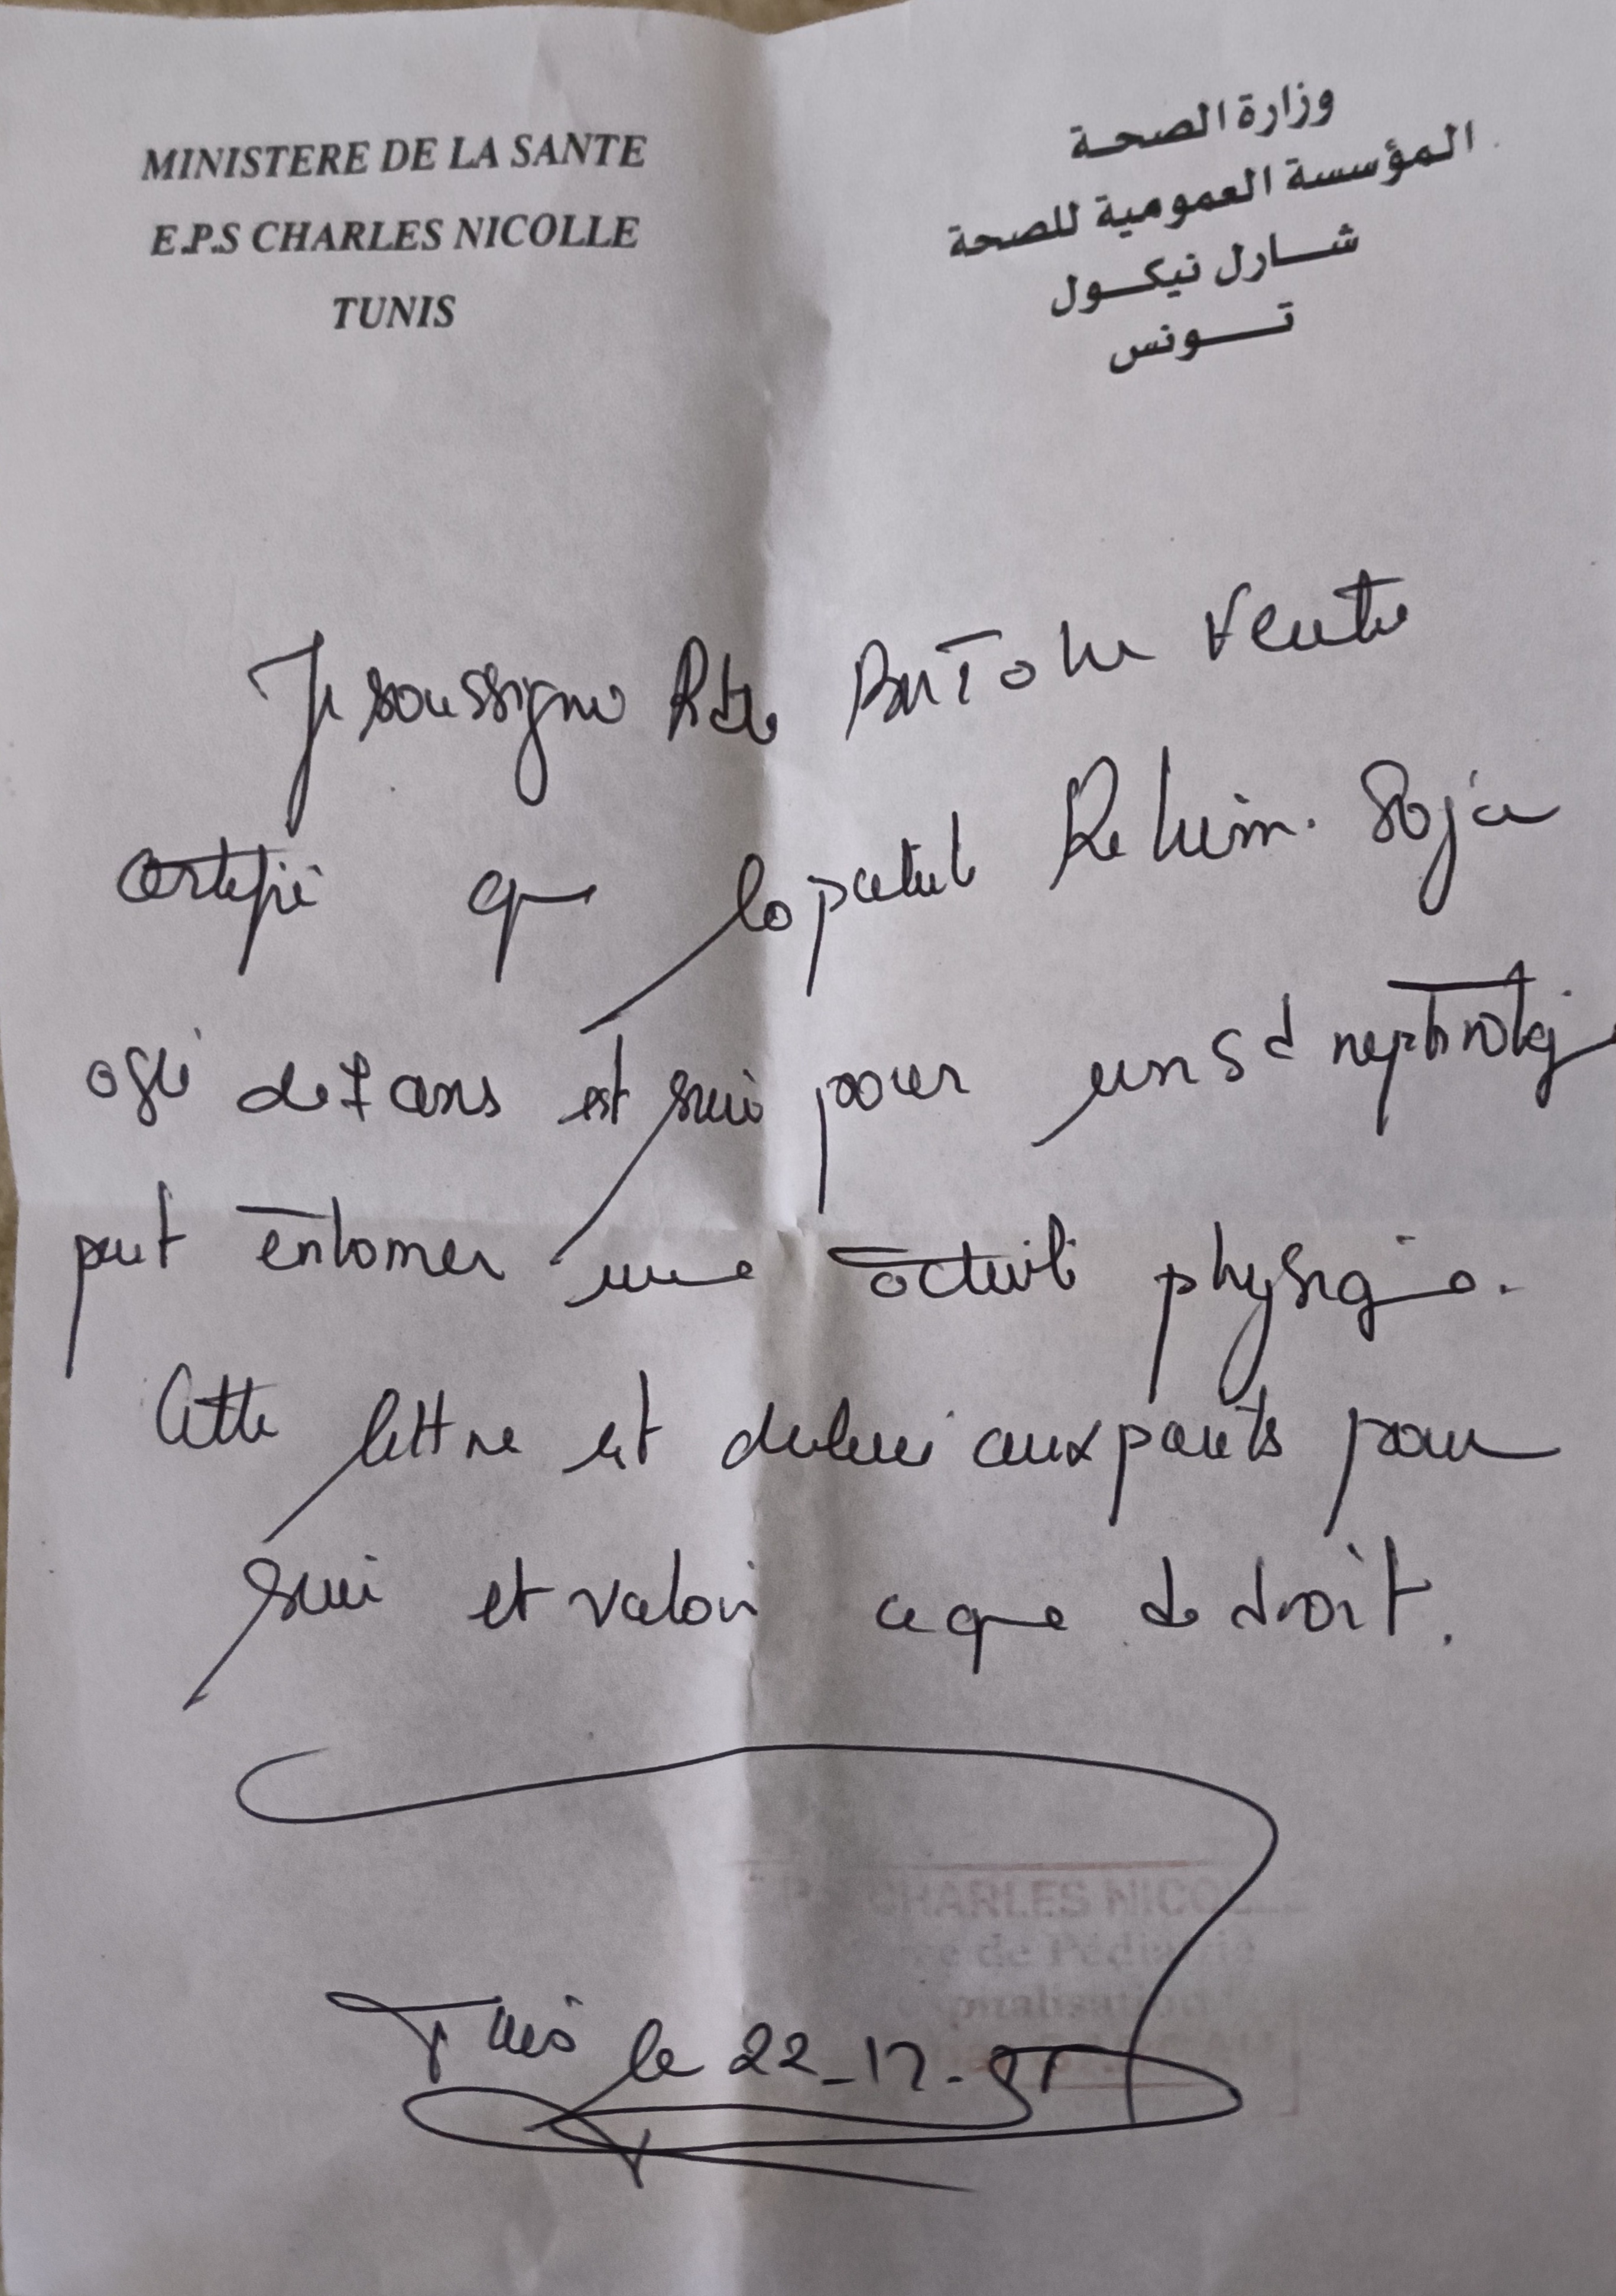 MINISTERE DE LA SANTE
E.P.S CHARLES NICOLLE
TUNIS
وزارة الصحة
المؤسسة العمومية للصحة
شارل نيكول
تونس
Je soussigné
certifie que le patient Rehim
agé de 7 ans est suivi pour un Sd nephrotiq
peut entamer une activité physique.
Cette lettre est délivré aux parents pour
servir et valoir ce que de droit.
CHARLES NICOLLE
de Pédiatrie
Tunis le 22-12-